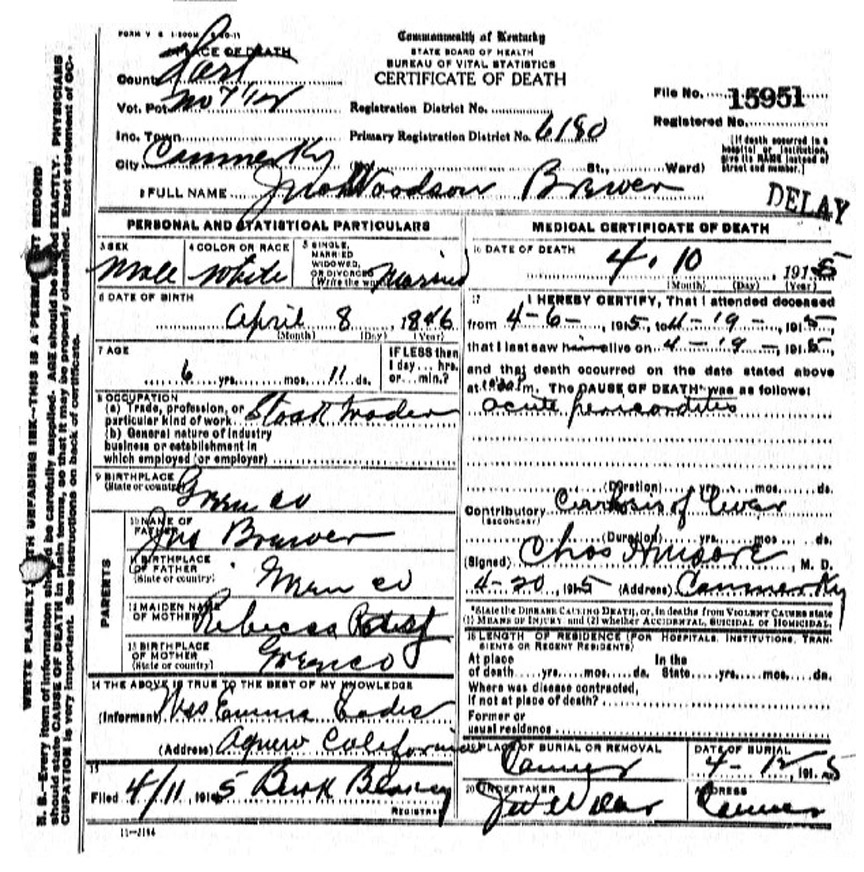 FORM V S 1-500M
Commonwealth of Kentucky
STATE BOARD OF HEALTH
BUREAU OF VITAL STATISTICS
CERTIFICATE OF DEATH
PLACE OF DEATH
County Hart
Vot. Pct. No 7
Inc. Town
City Canmer Ky
Registration District No.
Primary Registration District No. 6180
File No. 15951
Registered No.
[If death occurred in a hospital or institution, give its NAME instead of street and number.]
St., Ward)
2 FULL NAME Jno Woodson Brewer
DELAY
PERSONAL AND STATISTICAL PARTICULARS
3 SEX
Male
4 COLOR OR RACE
White
5 SINGLE, MARRIED WIDOWED, OR DIVORCED
(Write the word) Married
6 DATE OF BIRTH
April 8 1846
(Month) (Day) (Year)
7 AGE
6 yrs. mos. 11 ds.
IF LESS than
1 day... hrs.
or... min.?
8 OCCUPATION
(a) Trade, profession, or
particular kind of work Stock Trader
(b) General nature of industry
business or establishment in
which employed (or employer)
9 BIRTHPLACE
(State or country) Green co
PARENTS
10 NAME OF
FATHER Jno Brewer
11 BIRTHPLACE
OF FATHER
(State or country) Green co
12 MAIDEN NAME
OF MOTHER Rebecca
13 BIRTHPLACE
OF MOTHER
(State or country) Green co
14 THE ABOVE IS TRUE TO THE BEST OF MY KNOWLEDGE
(Informant) Mrs Emma
(Address) Agnew California
15
Filed 4/11 1915
REGISTRAR
11-3184
MEDICAL CERTIFICATE OF DEATH
16 DATE OF DEATH
4. 10, 1915
(Month) (Day) (Year)
17 I HEREBY CERTIFY, That I attended deceased
from 4-6-, 1915, to 4-19-, 1915,
that I last saw him alive on 4-19-, 1915,
and that death occurred on the date stated above
at m. The CAUSE OF DEATH was as follows:
acute pericarditis
(Duration) yrs. mos. ds.
Contributory Cirrhosis of liver
(SECONDARY)
(Duration) yrs. mos. ds.
(Signed) Chas H Moore, M. D.
4-20, 1915 (Address) Canmer Ky
*State the DISEASE CAUSING DEATH, or, in deaths from VIOLENT CAUSES state
(1) MEANS OF INJURY and (2) whether ACCIDENTAL, SUICIDAL or HOMICIDAL.
18 LENGTH OF RESIDENCE (FOR HOSPITALS, INSTITUTIONS, TRANSIENTS OR RECENT RESIDENTS)
At place of death yrs. mos. ds. In the State yrs. mos. ds.
Where was disease contracted,
If not at place of death?
Former or
usual residence
19 PLACE OF BURIAL OR REMOVAL
Canmer
DATE OF BURIAL
4-12, 1915
20 UNDERTAKER
ADDRESS
Canmer
WRITE PLAINLY, WITH UNFADING INK--THIS IS A PERMANENT RECORD
N. B.--Every item of information should be carefully supplied. AGE should be stated EXACTLY. PHYSICIANS
should state CAUSE OF DEATH in plain terms, so that it may be properly classified. Exact statement of OC-
CUPATION is very important. See instructions on back of certificate.